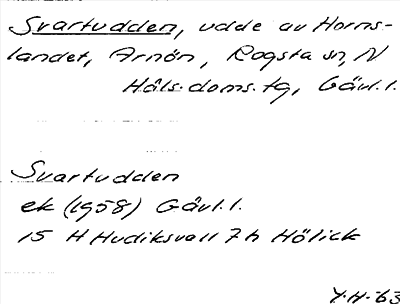 Svartudden, udde av Horns-
landet, Arnön, Rogsta sn, N
Häls. doms. tg, Gävl. l.
Svartudden
ek (1958) Gävl. l.
15 H Hudiksvall 7h Hölick
Y.H. 63